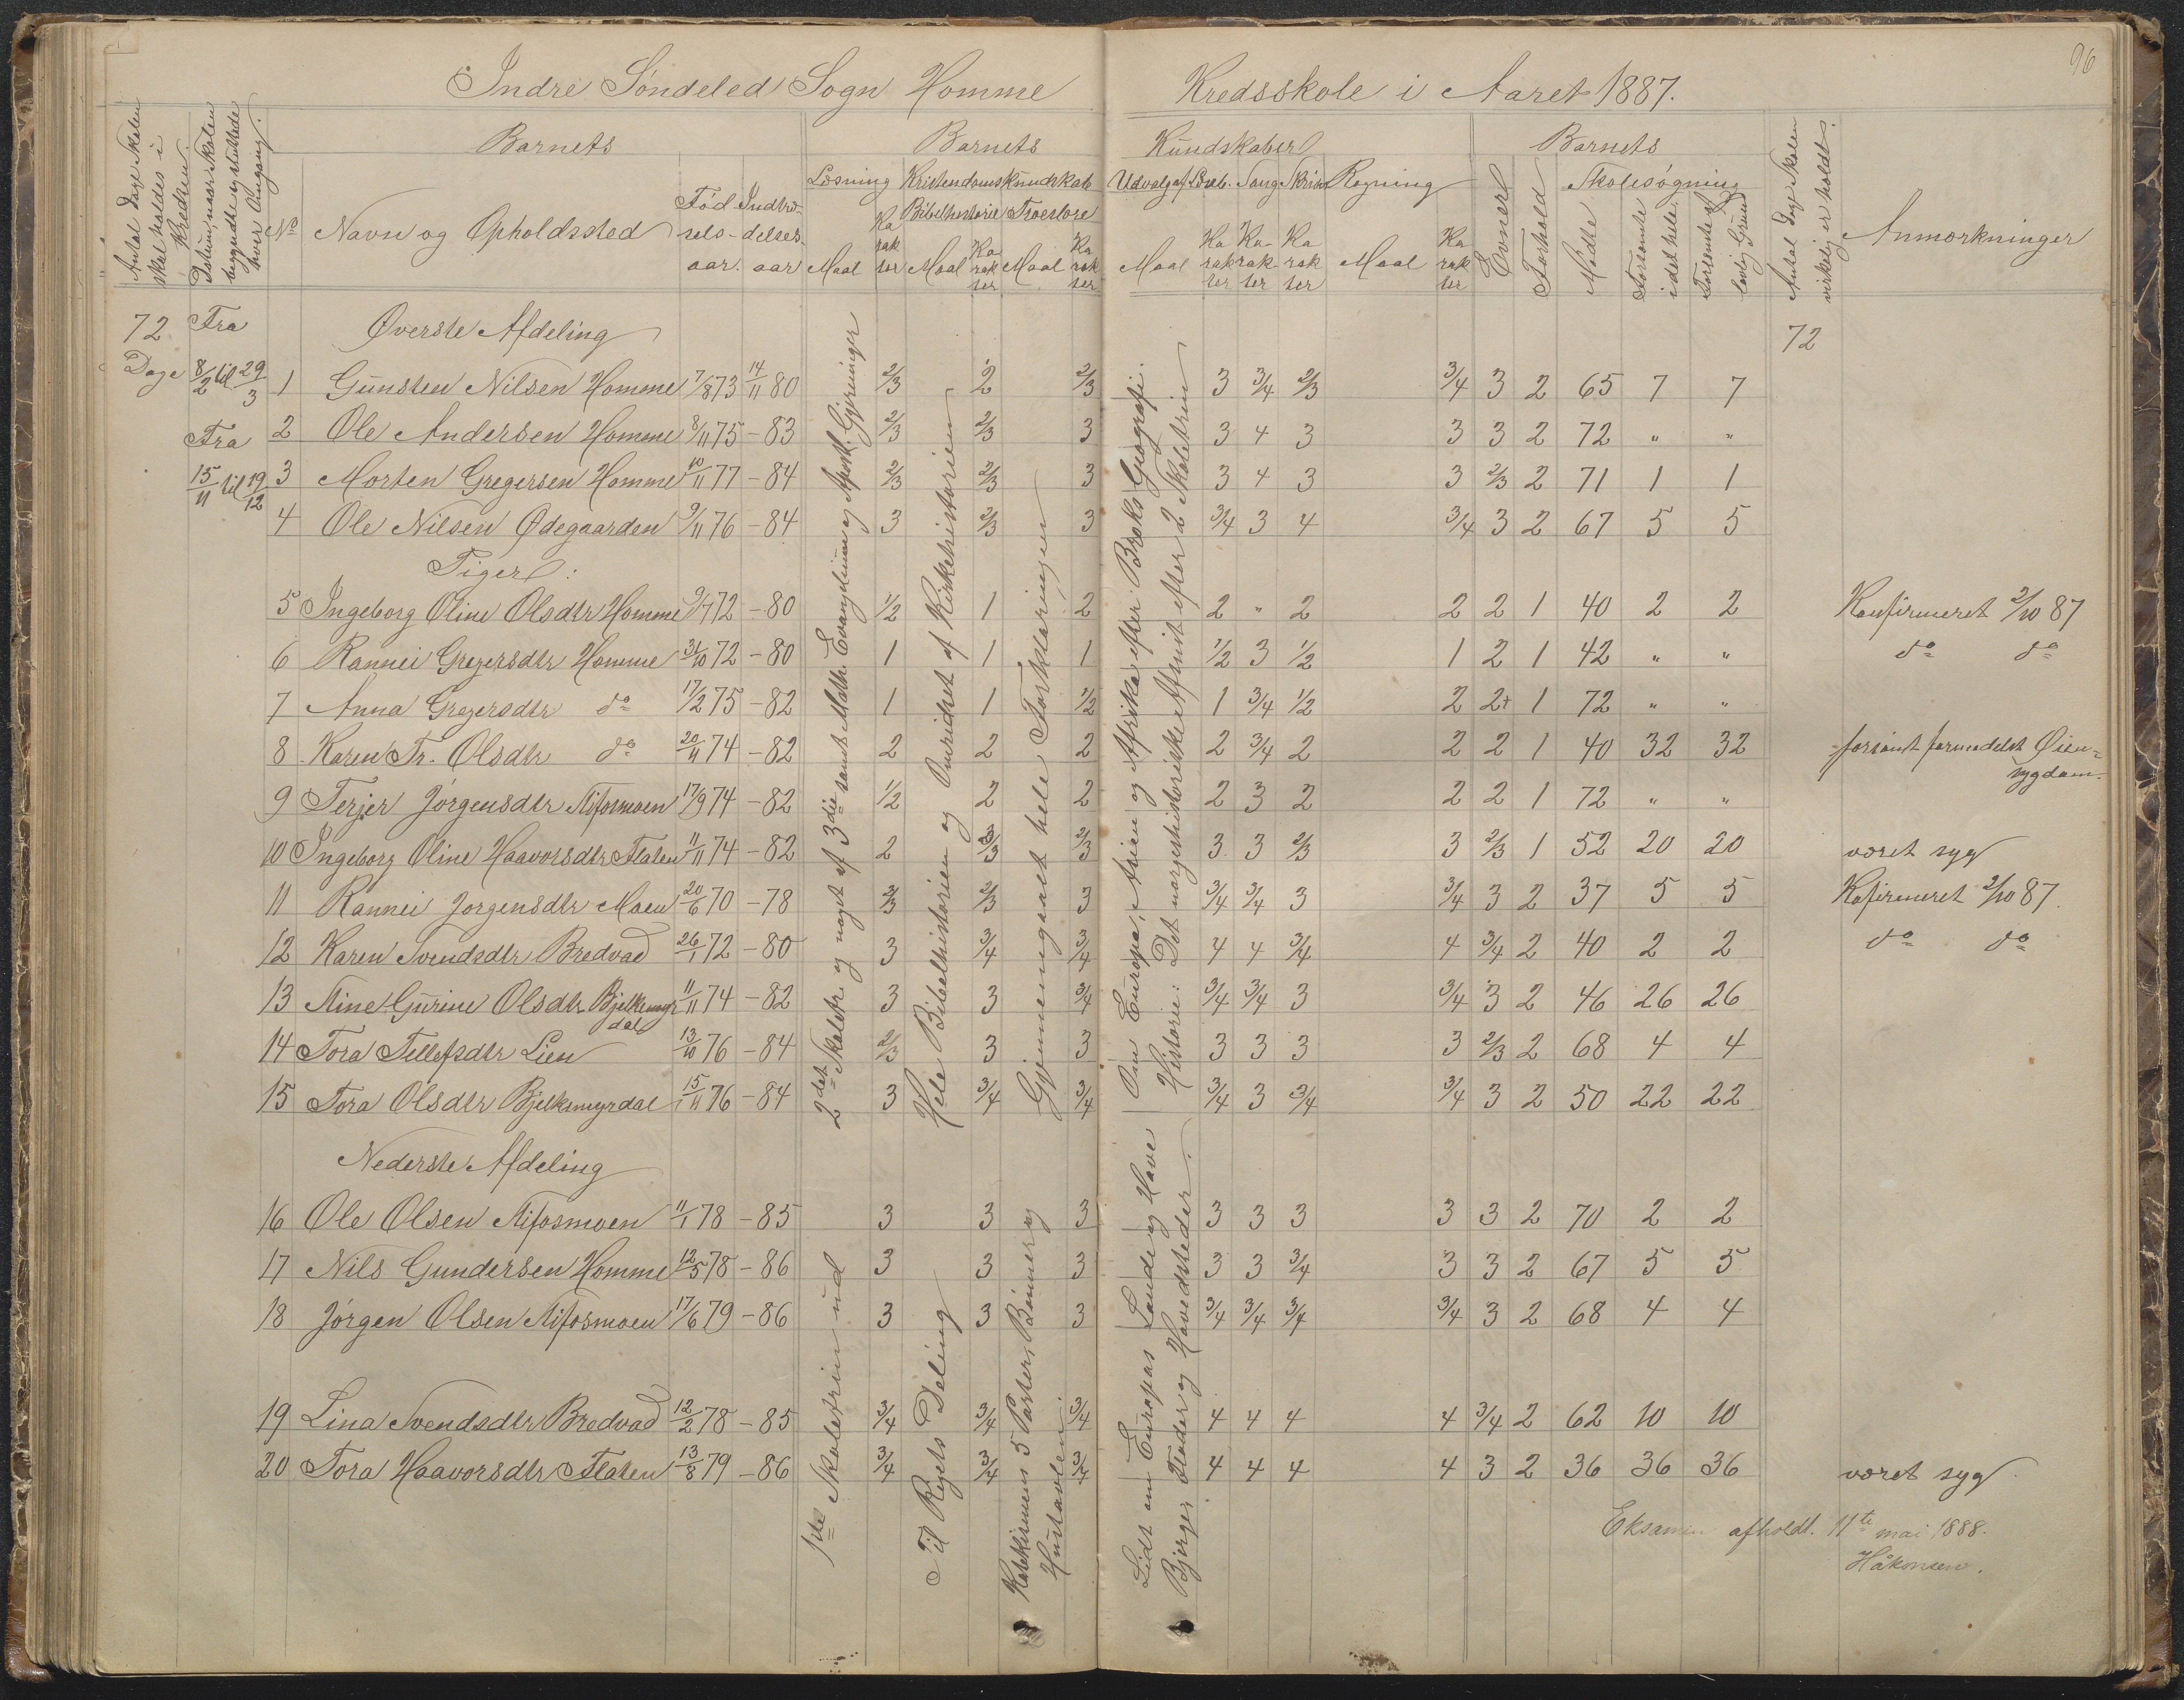 96
Indre Söndeled Sogn Homme Kredsskole i Aaret 1887.
Antal Dage Skolen skal holdes i Kredsen.
Datum, naar Skolen begyndte og sluttede hver Omgang.
Barnets
Barnets Kundskaber
Barnets
No
Navn og Opholdssted
Fødselsaar.
Indtrædelsesaar
Læsning
Kristendomskundskab
Bibelhistorie Troeslære
Maal Karakter Maal Karakter Maal Karakter
Udvalg af Læseb. Sang Skrivn Regning
Maal Karakter Karakter Karakter Maal Karakter
Evner
Forhold
Skolesøgning
Mødte
Forsømte i det hele
Forsømte af lovlig Grund
Antal Dage Skolen virkelig er holdt.
Anmærkninger
72 Dage
Fra 8/2 til 29/3
Fra 15/11 til 19/12
Øverste Afdeling
72
1 Gunsten Nilsen Homme 7/8 73 14/11 80 2/3 2 2/3 3 3/4 2/3 3/4 3 2 65 7 7
2 Ole Andersen Homme 8/11 75 - 83 2/3 2/3 3 3 4 3 3 3 2 72 " "
3 Morten Gregersen Homme 10/11 77 - 84 2/3 2/3 3 3 4 3 3 2/3 2 71 1 1
4 Ole Nilsen Ødegaarden 9/11 76 - 84 3 2/3 3 3/4 3 4 3/4 3 2 67 5 5
Piger:
5 Ingeborg Oline Olsdtr Homme 9/7 72 - 80 1/2 1 2 2 " 2 2 2 1 40 2 2 Konfirmeret 2/10 87
6 Rannei Gregersdtr Homme 31/10 72 - 80 1 1 1 1/2 3 1/2 1 2 1 42 " " do do
7 Anna Gregersdtr do 17/2 75 - 82 1 1 1/2 1 3/4 1/2 2 2+ 1 72 " "
8 Karen Tr. Olsdtr do 20/11 74 - 82 2 2 2 2 3/4 2 2 2 1 40 32 32 forsømt formedelst Øiensygdom.
9 Terjer Jörgensdtr Stifosmoen 17/9 74 - 82 1/2 2 2 2 3 2 2 2 1 72 " "
10 Ingeborg Oline Haavorsdtr Flaten 11/11 74 - 82 2 2/3 2/3 3 3 2/3 3 2/3 1 52 20 20 været syg
11 Rannei Jorgensdtr Moen 20/6 70 - 78 2/3 2/3 3 3/4 3/4 3 3/4 3 2 37 5 5 Kofirmeret 2/10 87.
12 Karen Svendsdtr Bredvad 26/1 72 - 80 3 3/4 3/4 4 4 3/4 4 3/4 2 40 2 2 do do
13 Stine Gurine Olsdtr Bjelkemyrdal 11/11 74 - 82 3 3 3/4 3/4 3/4 3 3/4 3 2 46 26 26
14 Tora Tellefsdtr Lien 13/10 76 - 84 2/3 3 3 3 3 3 3 2/3 2 68 4 4
15 Tora Olsdtr Bjelkemyrdal 15/11 76 - 84 3 3/4 3/4 3/4 3 3/4 3/4 3 2 50 22 22
2det Skoletr. og noget af 3die samt Matth. Evangelium og Apost. Gjerninger
Hele Bibelhistorien og Omridset af Kirkehistorien
Gjennemgaaet hele Forklaringen
Om Europa, Asien og Afrika efter Broks Geografi.
Historie: Det norgeshistoriske Afsnit efter 2 Skoletrin
Nederste Afdeling
16 Ole Olsen Stifosmoen 11/1 78 - 85 3 3 3 3 3 3 3 3 2 70 2 2
17 Nils Gundersen Homme 12/5 78 - 86 3 3 3 3 3 3/4 3 3 2 67 5 5
18 Jörgen Olsen Stifosmoen 17/6 79 - 86 3 3 3 3/4 3/4 3/4 3/4 3 2 68 4 4
19 Lina Svendsdtr Bredvad 12/2 78 - 85 3/4 3/4 3/4 4 4 4 4 3/4 2 62 10 10
20 Tora Haavorsdtr Flaten 13/8 79 - 86 3/4 3/4 3/4 4 4 4 4 3 2 36 36 36 været syg
1ste Skoletrin ud
Til Rigets Deling
Katekismens 5 Parter, Bönner og Hustavlen.
Lidt om Europas Lande og Have
Bjerger Floder og Hovedsteder.
Eksamen afholdt. 11te mai 1888.
Håkonsen.